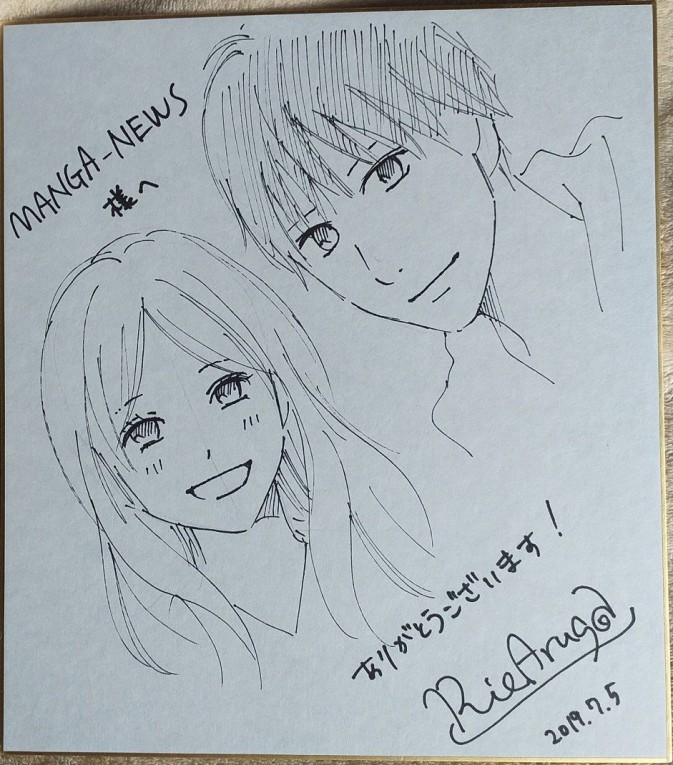 MANGA-NEWS
様へ
ありがとうございます!
Rie Aruga
2019.7.5